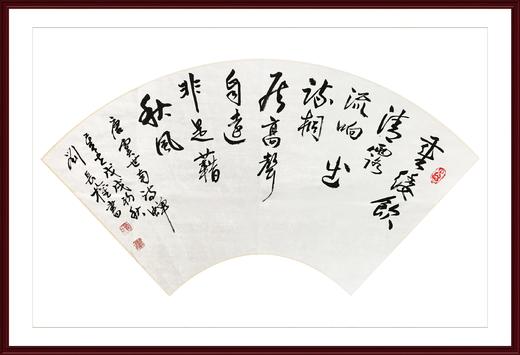 垂緌飲
清露
流响出
疏桐
居高聲
自遠
非是藉
秋風
唐虞世南詩蟬
戊戌初秋
劉長書